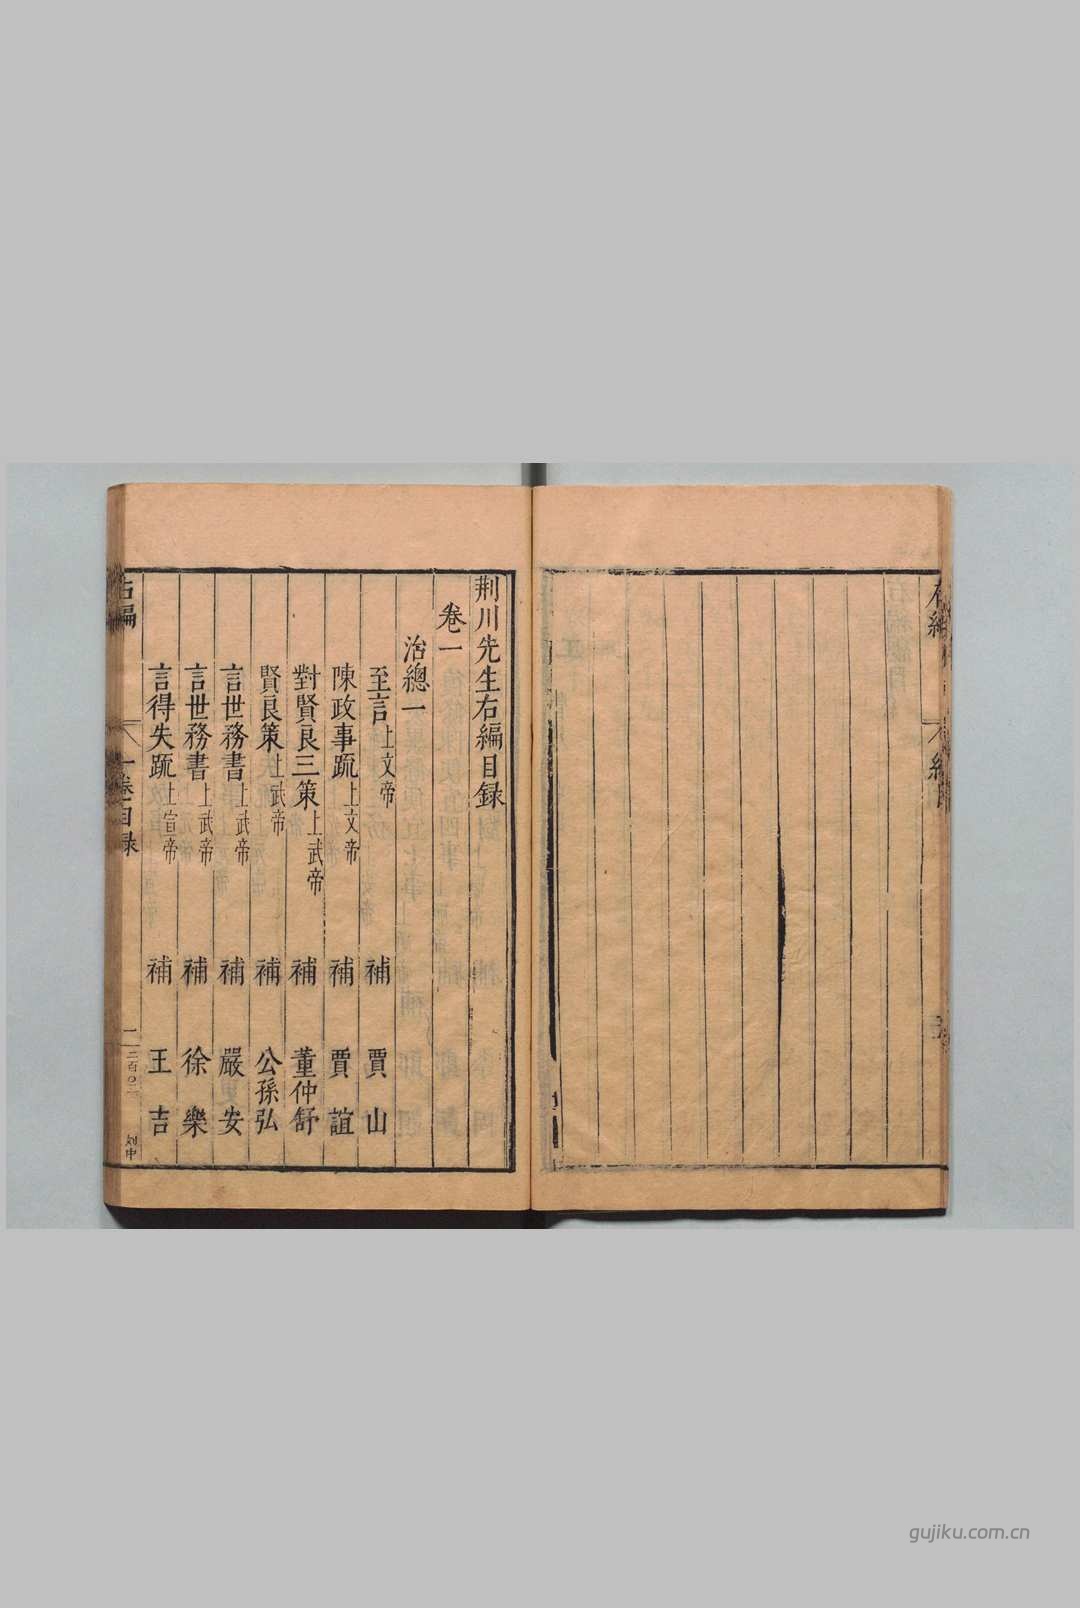 荆川先生右編目録
卷一
治總一
至言上文帝 補 賈山
陳政事疏上文帝 補 賈誼
對賢良三策上武帝 補 董仲舒
賢良策上武帝 補 公孫弘
言世務書上武帝 補 嚴安
言世務書上武帝 補 徐樂
言得失疏上宣帝 補 王吉
右編 卷一目録 一
gujiku.com.cn